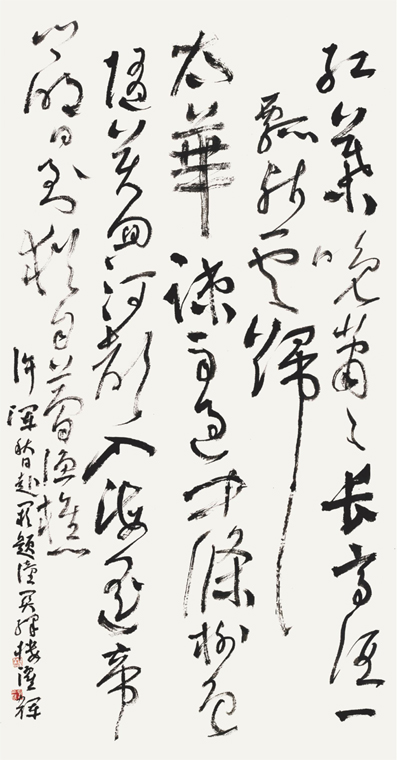 紅葉晚蕭々長亭酒一
瓢殘雲歸
太華疎雨過中條樹色
隨關迥河聲入海遥帝
鄉明日到猶自夢漁樵
許渾秋日赴闕題潼關驛樓